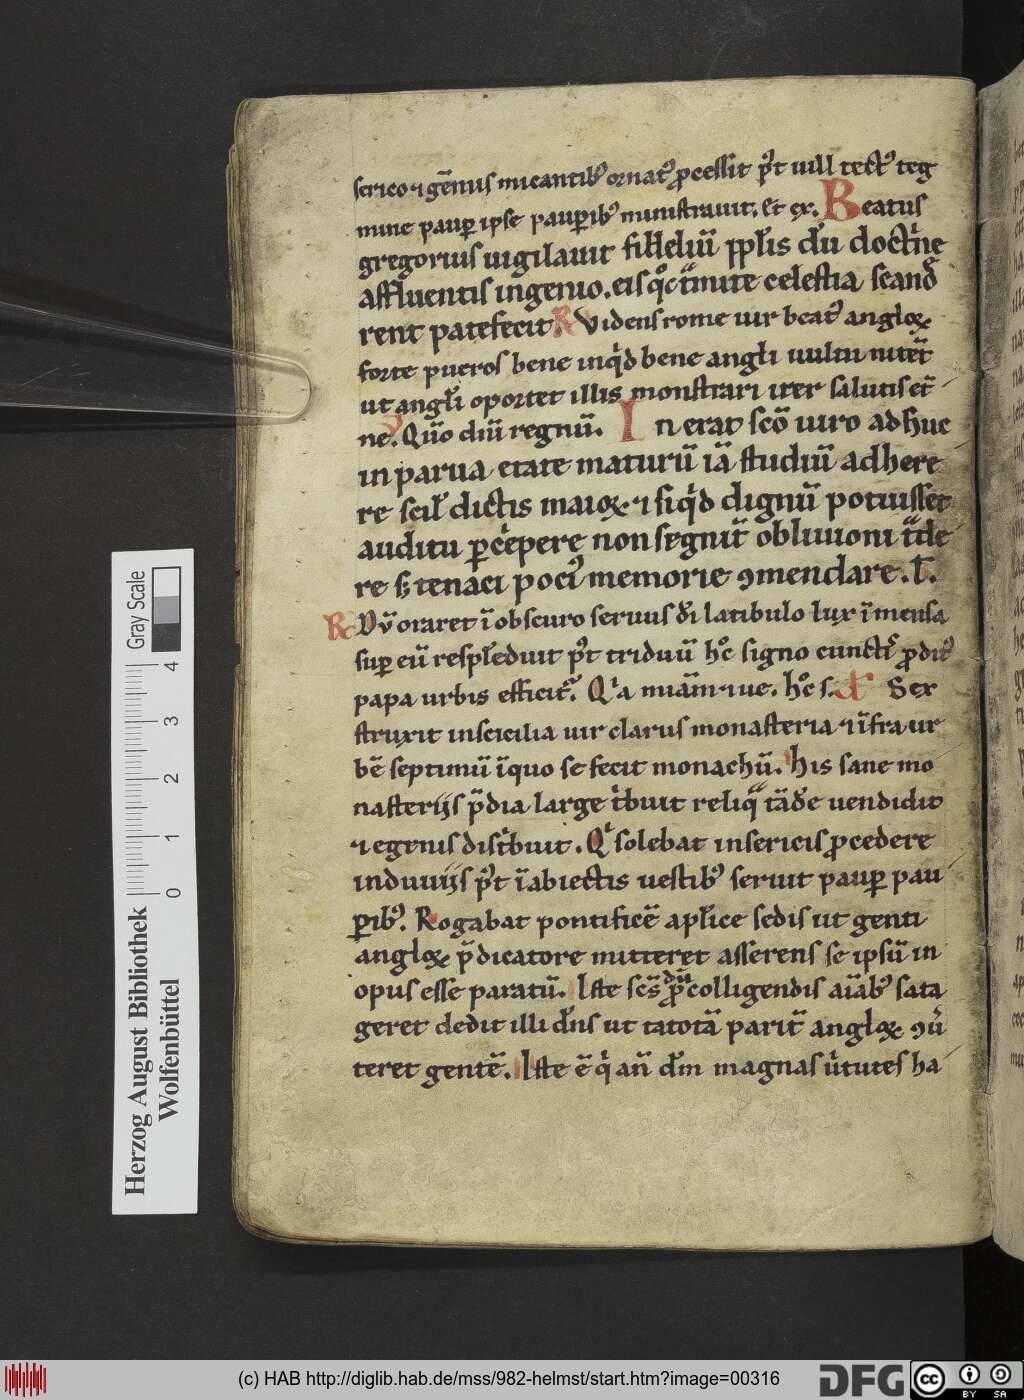 serico ⁊ gēmis micantibꝰ ornatꝰ ꝓcessit pꝰt uill tectꝰ teg
mine paup̱ ipse paup̱ibꝰ ministrauit. et ex. Beatus
gregorius uigilauit fideliū
affluentis ingenio. celestia
rent patefecit R Videns rome uir beatꝰ angloꝝ
forte pueros bene inqͥd bene angli uultu nitēt
ut angli oportet illis monstrari iter salutis et̄
ne. Qm̄o diū regnū. In erat sc̄o uiro adhuc
in parua etate maturū iā studiū adhere
re scil̓ dictis maioꝝ ⁊ siqͥd dignū potuisset
auditu p̱cipere non segnit̓ obliuioni tͣde
re sꝫ tenaci pociꝰ memorie ꝯmendare. t̄.
R Dū oraret ī obscuro seruus dī latibulo lux īmensa
sup̱ eū resplēduit pꝰt triduū hͦc signo cunctͥ ꝓditꝰ
papa urbis efficitᷣ. Qͥa
struxit in scicilia uir clarus monasteria ⁊ īfra ur
bē septimū ī quo se fecit monachū. His sane mo
nasterijs p̄dia large tͥbuit reliqͣ uendidit
⁊ egenis distͥbuit. Qͥ solebat in sericis ꝓcedere
induuijs pꝰt ī abiectis uestibꝰ seruit paup̱ pau
p̱ibꝰ. Rogabat pontificē apl̓ice sedis ut genti
angloꝝ p̄dicatore mitteret asserens se ipsū in
opus esse paratū. Iste sc̄s dū ꝓ colligendis aīabꝰ sata
geret dedit illi dn̄s ut totā parit̓ angloꝝ ꝯuͥ
teret gentē. Iste ē qͥ an̄ dm̄ magnas uͥtutes
Herzog August Bibliothek
Wolfenbüttel
Gray Scale
0 1 2 3 4
(c) HAB http://diglib.hab.de/mss/982-helmst/start.htm?image=00316
DFG
cc
BY SA